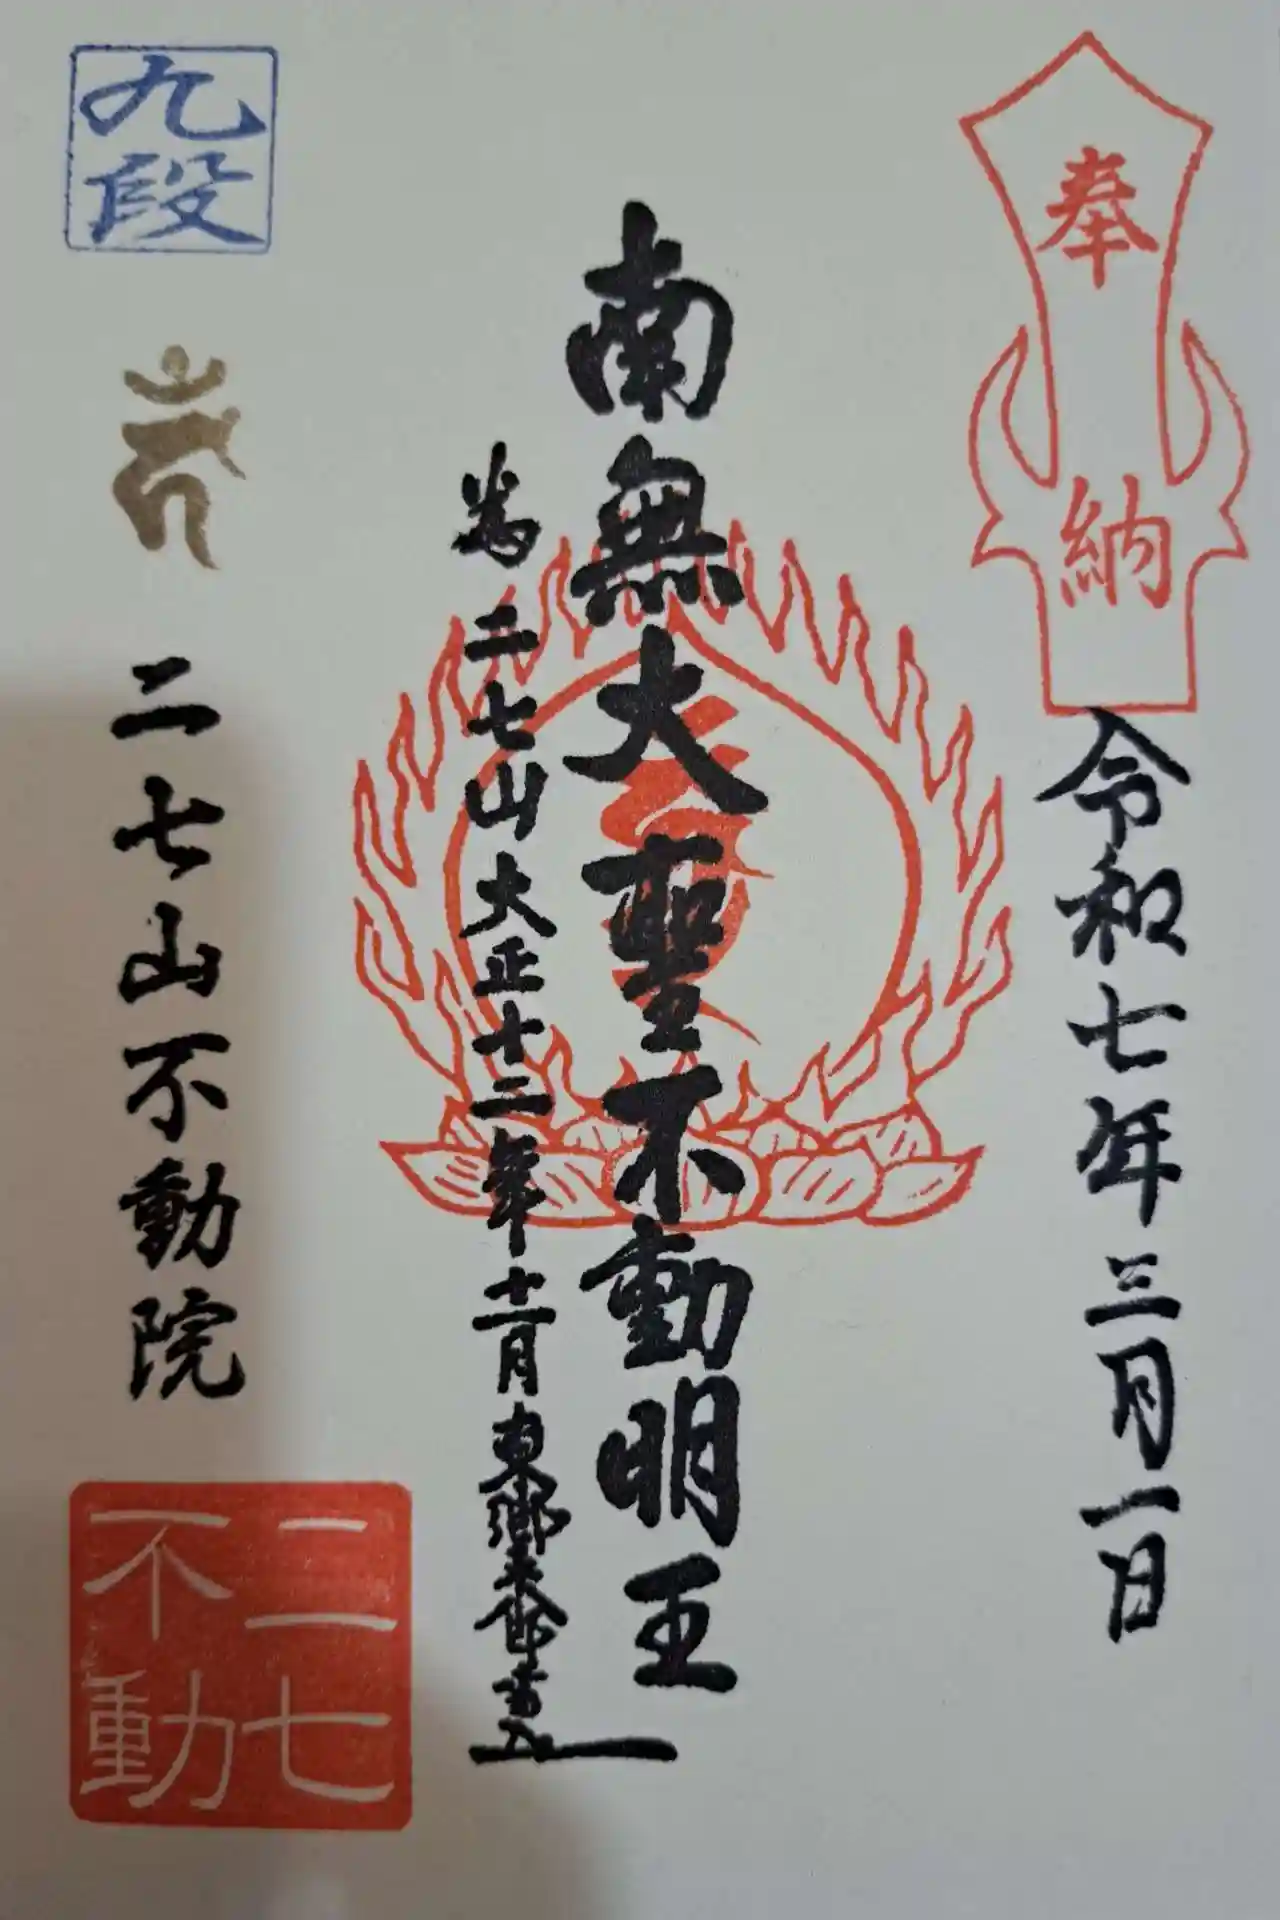 奉納
令和七年三月一日
南無大聖不動明王
為 二七山大正十二年十二月東郷
九段
二七山不動院
二七
不動